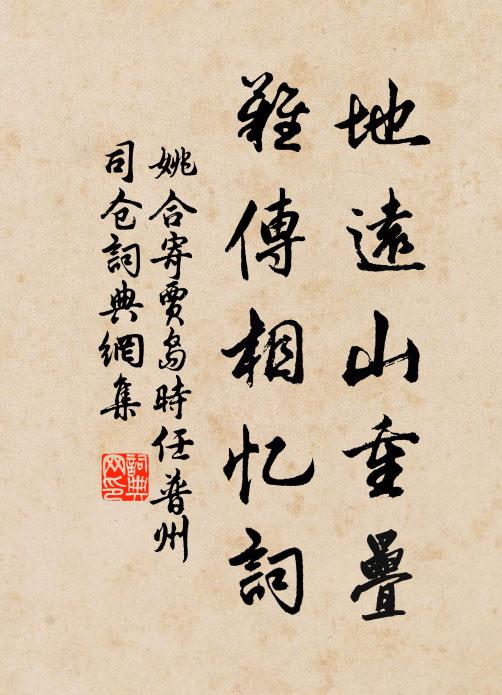 地遠山重疊
難傳相忆詞
姚合寄賈島時任普州
司仓詞典網集
詞典
网印